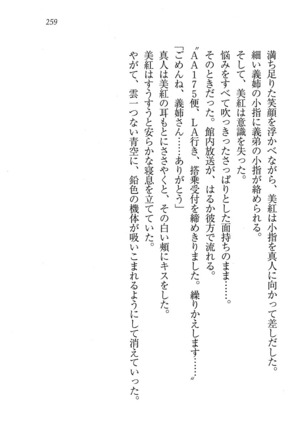 259
満ち足りた笑顔を浮かべながら、美紅は小指を真人に向かって差しだした。
細い義姉の小指に義弟の小指が絡められる。
そして、美紅は意識を失った。
悩みをすべて吹っきったさっぱりとした面持ちのまま……。
そのときだった。館内放送が、はるか彼方で流れる。
〝AA175便、LA行き、搭乗受付を締めきりました。繰りかえします……〟
「ごめんね、義姉さん……ありがとう」
真人は美紅の耳もとにささやくと、その白い頬にキスをした。
美紅はすうすうと安らかな寝息を立てていた。
やがて、雲一つない青空に、鉛色の機体が吸いこまれるようにして消えていった。